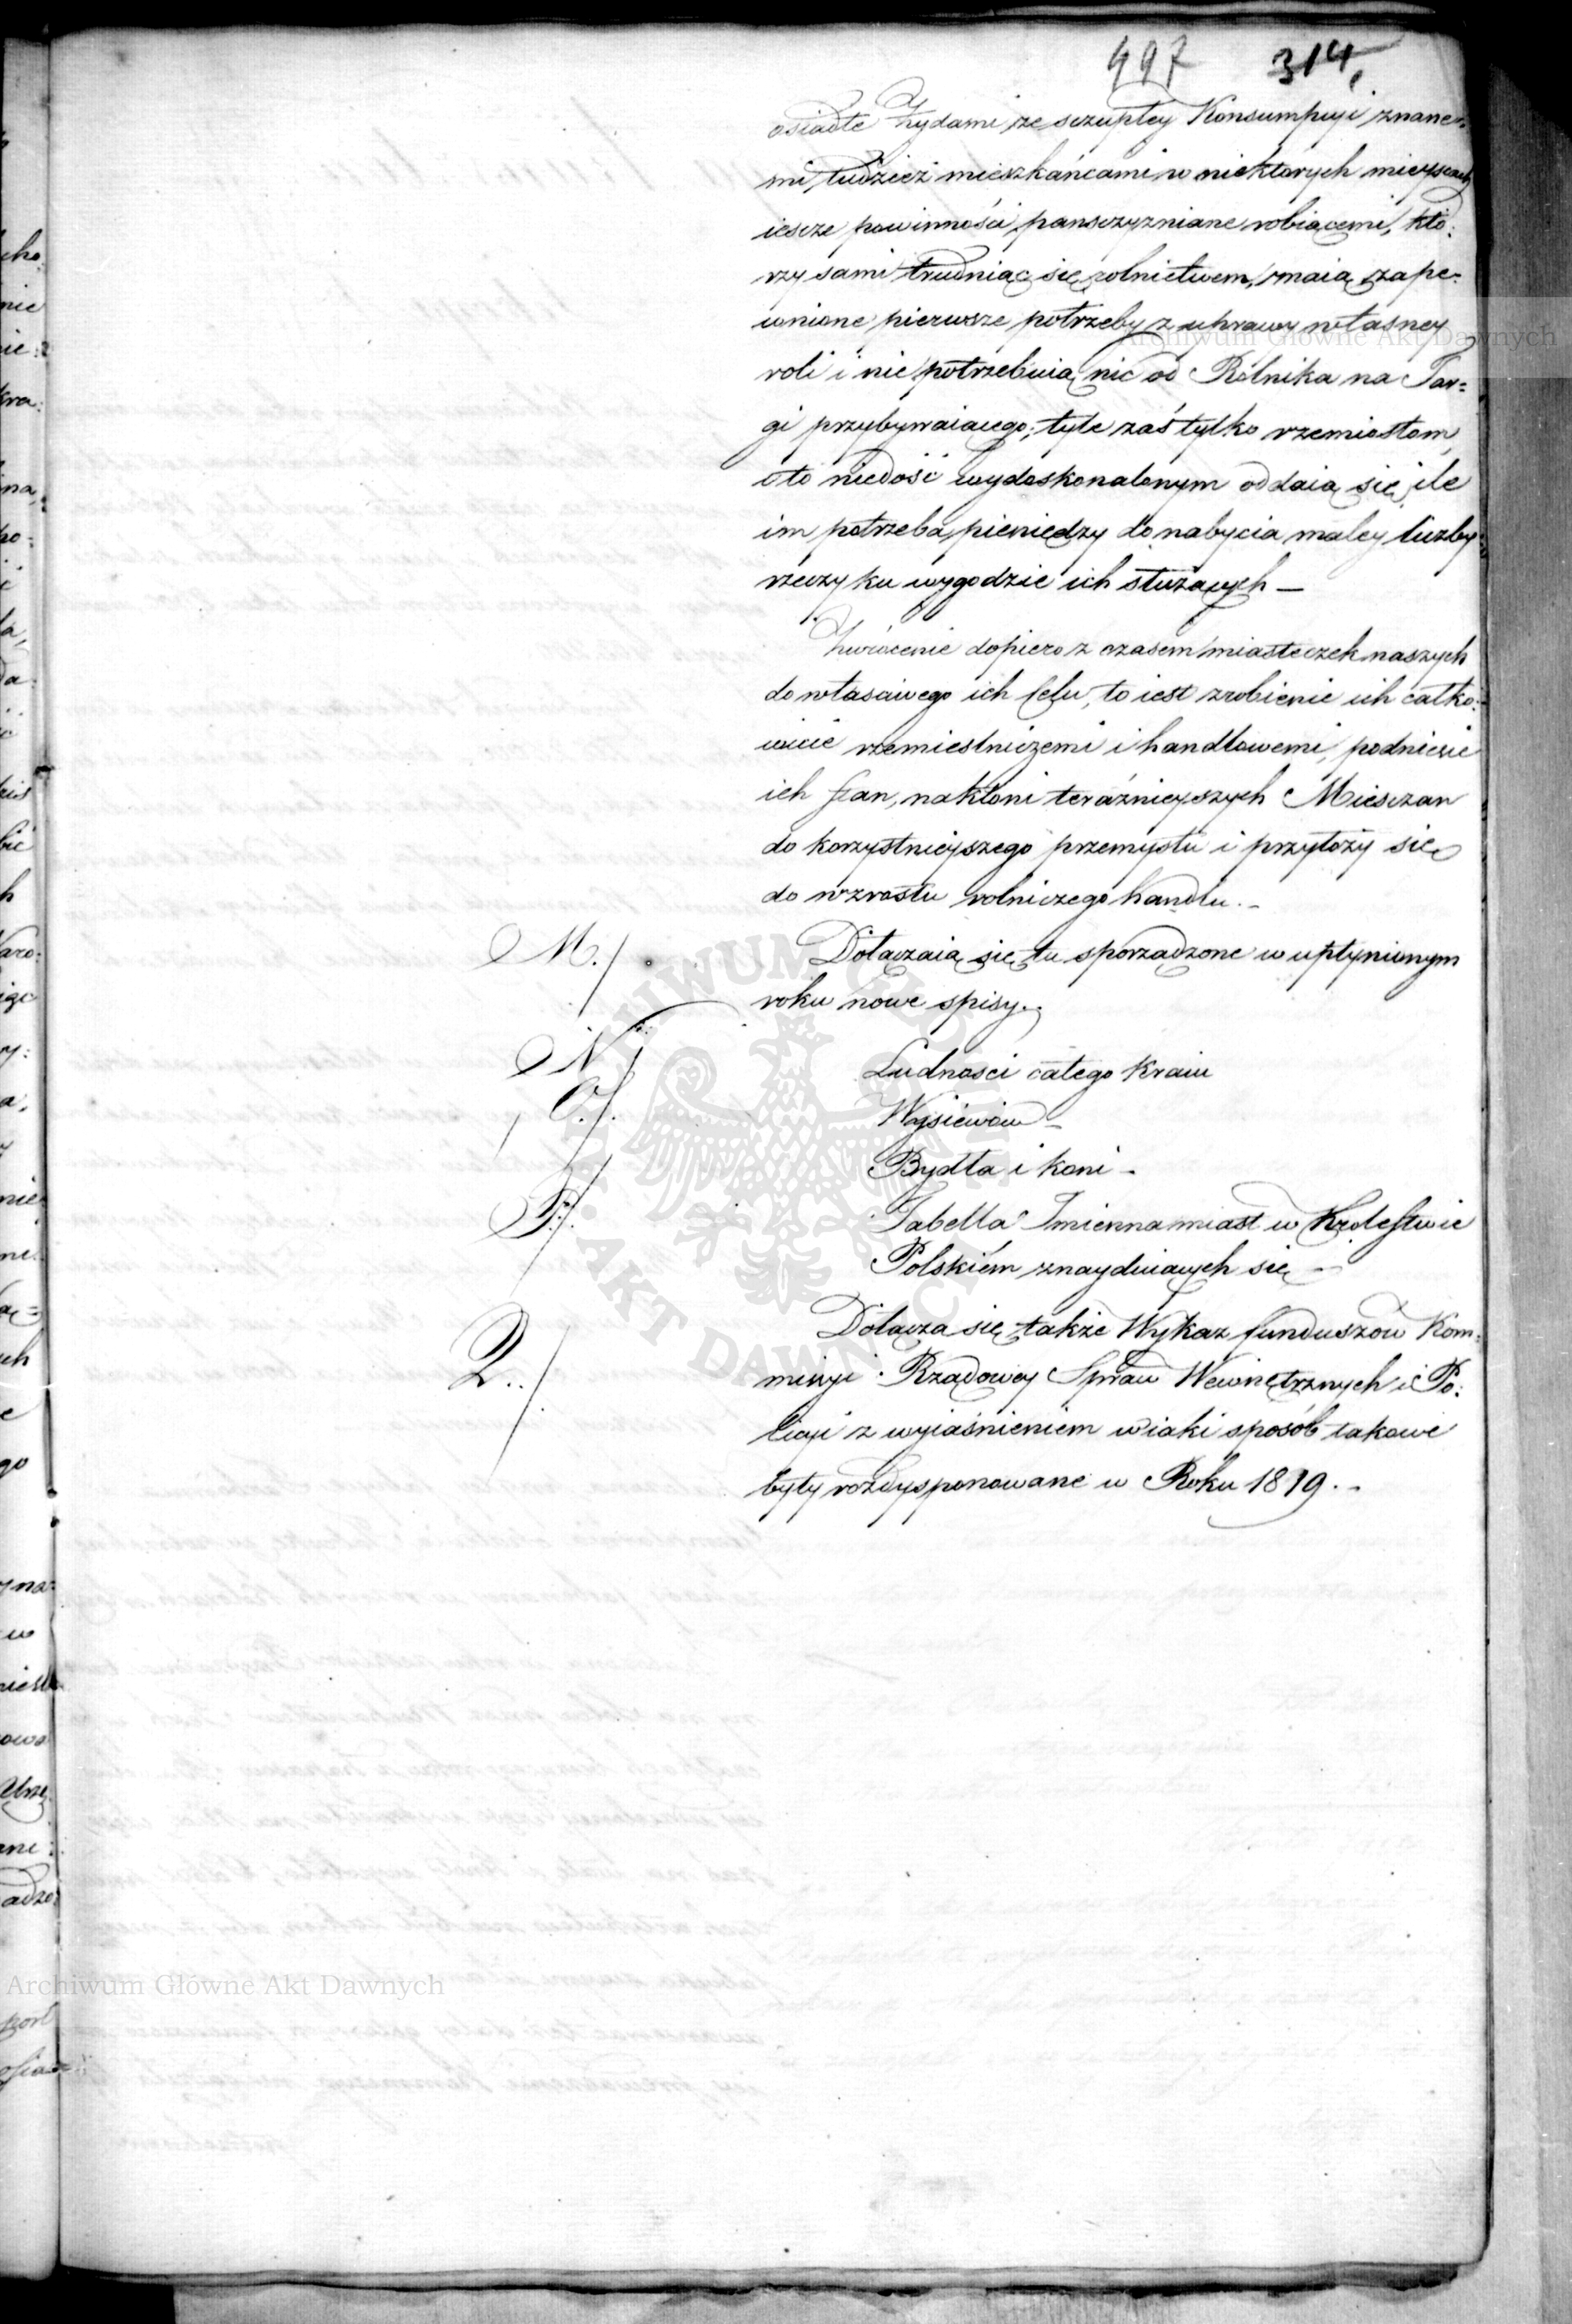 497 314.
osiadłe Żydami ze szczupłey Konsumpcyi znane-
mi, tudzież mieszkańcami w niektorych mieyscach
iescze powinności pansczyzniane robiącemi, któ:
rzy sami trudniąc się rolnictwem, maią zape-
wnione pierwsze potrzeby z uprawy własney
roli i nie potrzebuią nic od Rolnika na Tar=
gi przybywaiącego; tyle zaś tylko rzemiosłom,
a to niedość wydoskonalonym oddaią się, ile
im potrzeba pieniędzy do nabycia małey liczby
rzeczy ku wygodzie ich służących —
Zwrócenie dopiero z czasem miasteczek naszych
do własciwego ich Celu, to iest zrobienie ich całko:
wicie rzemieslniczemi i handlowemi, podniesie
ich stan, nakłoni teraźnieyszych Miesczan
do korzystnieyszego przemysłu i przyłoży się
do wzrostu rolniczego handlu.-
M./ Dołączaią się tu sporządzone w upłynionym
roku nowe spisy.
N/ Ludnosci całego Kraiu
O/. Wysiewów -
Bydła i koni -
P/. Tabella Imienna miast w Królestwie
Polskiém znayduiących się -
Q../ Dołącza się także Wykaz funduszów Kom:
missyi Rządowey Spraw Wewnętrznych i Po:
licyi z wyiaśnieniem w iaki sposób takowe
były rozdysponowane w Roku 1819.-
Archiwum Główne Akt Dawnych
Archiwum Główne Akt Dawnych